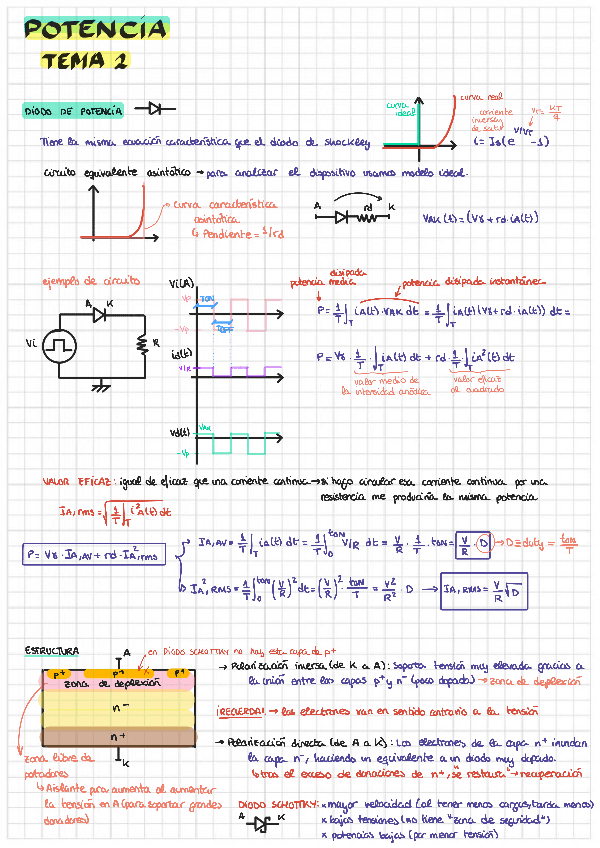 POTENCIA
TEMA 2
DIODO DE POTENCIA
curva ideal
curva real
corriente inversa de satur
VT= KT/q
Tiene la misma ecuación característica que el diodo de shockley
i= Is(e^V/VT -1)
circuito equivalente asintótico → para analizar el dispositivo usamos modelo ideal.
curva característica asintótica
↳ Pendiente = 1/rd
A rd K
VAK(t)=(Vγ + rd·iA(t))
ejemplo de circuito
A K
Vi
R
Vi(A)
Vp
TON
TOFF
-Vp
id(t)
V/R
Vd(t)
VAK
-Vp
potencia media disipada
potencia disipada instantánea
P= 1/T ∫T iA(t)·VAK dt = 1/T ∫T iA(t)(Vγ + rd·iA(t)) dt =
P= Vγ · 1/T · ∫T iA(t) dt + rd · 1/T ∫T iA²(t) dt
valor medio de la intensidad anódica
valor eficaz al cuadrado
VALOR EFICAZ: igual de eficaz que una corriente continua → si hago circular esa corriente continua por una
resistencia me produciría la misma potencia
IA,rms = √(1/T ∫T i²A(t) dt)
P= Vγ · IA,AV + rd · IA²,rms
IA,AV = 1/T ∫T ia(t) dt = 1/T ∫0^tON V/R dt = V/R · 1/T · tON = V/R · D → D≡duty = tON/T
IA²,RMS = 1/T ∫0^tON (V/R)² dt = (V/R)² · tON/T = V²/R² · D → IA,RMS = V/R √D
ESTRUCTURA
A
en DIODO SCHOTTKY no hay esta capa de p+
p+ p+ p+
zona de deplexión
n-
n+
K
zona libre de portadores
↳ Aislante para aumenta al aumentar
la tensión en A (para soportar grandes
donadores)
→ Polarización inversa (de K a A): Soporta tensión muy elevada gracias a
la unión entre las capas p+ y n- (poco dopada) → zona de deplexión
¡RECUERDA! → los electrones van en sentido contrario a la tensión
→ Polarización directa (de A a K): Los electrones de la capa n+ inundan
la capa n-, haciendo un equivalente a un diodo muy dopado.
↳ tras el exceso de donaciones de n+, "se restaura" → recuperación
DIODO SCHOTTKY: × mayor velocidad (al tener menos cargas, tarda menos)
A K
× bajas tensiones (no tiene "zona de seguridad")
× potencias bajas (por menor tensión)